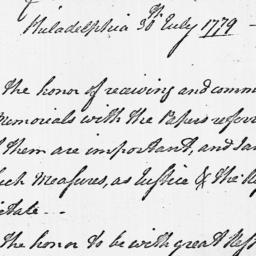 Philadelphia 30th July 1779 -
The honor of receiving and comm
Memorials with the Papers referr
them are important, and I am
such Measures, as Justice & the
ictate - -
The honor to be with great Res